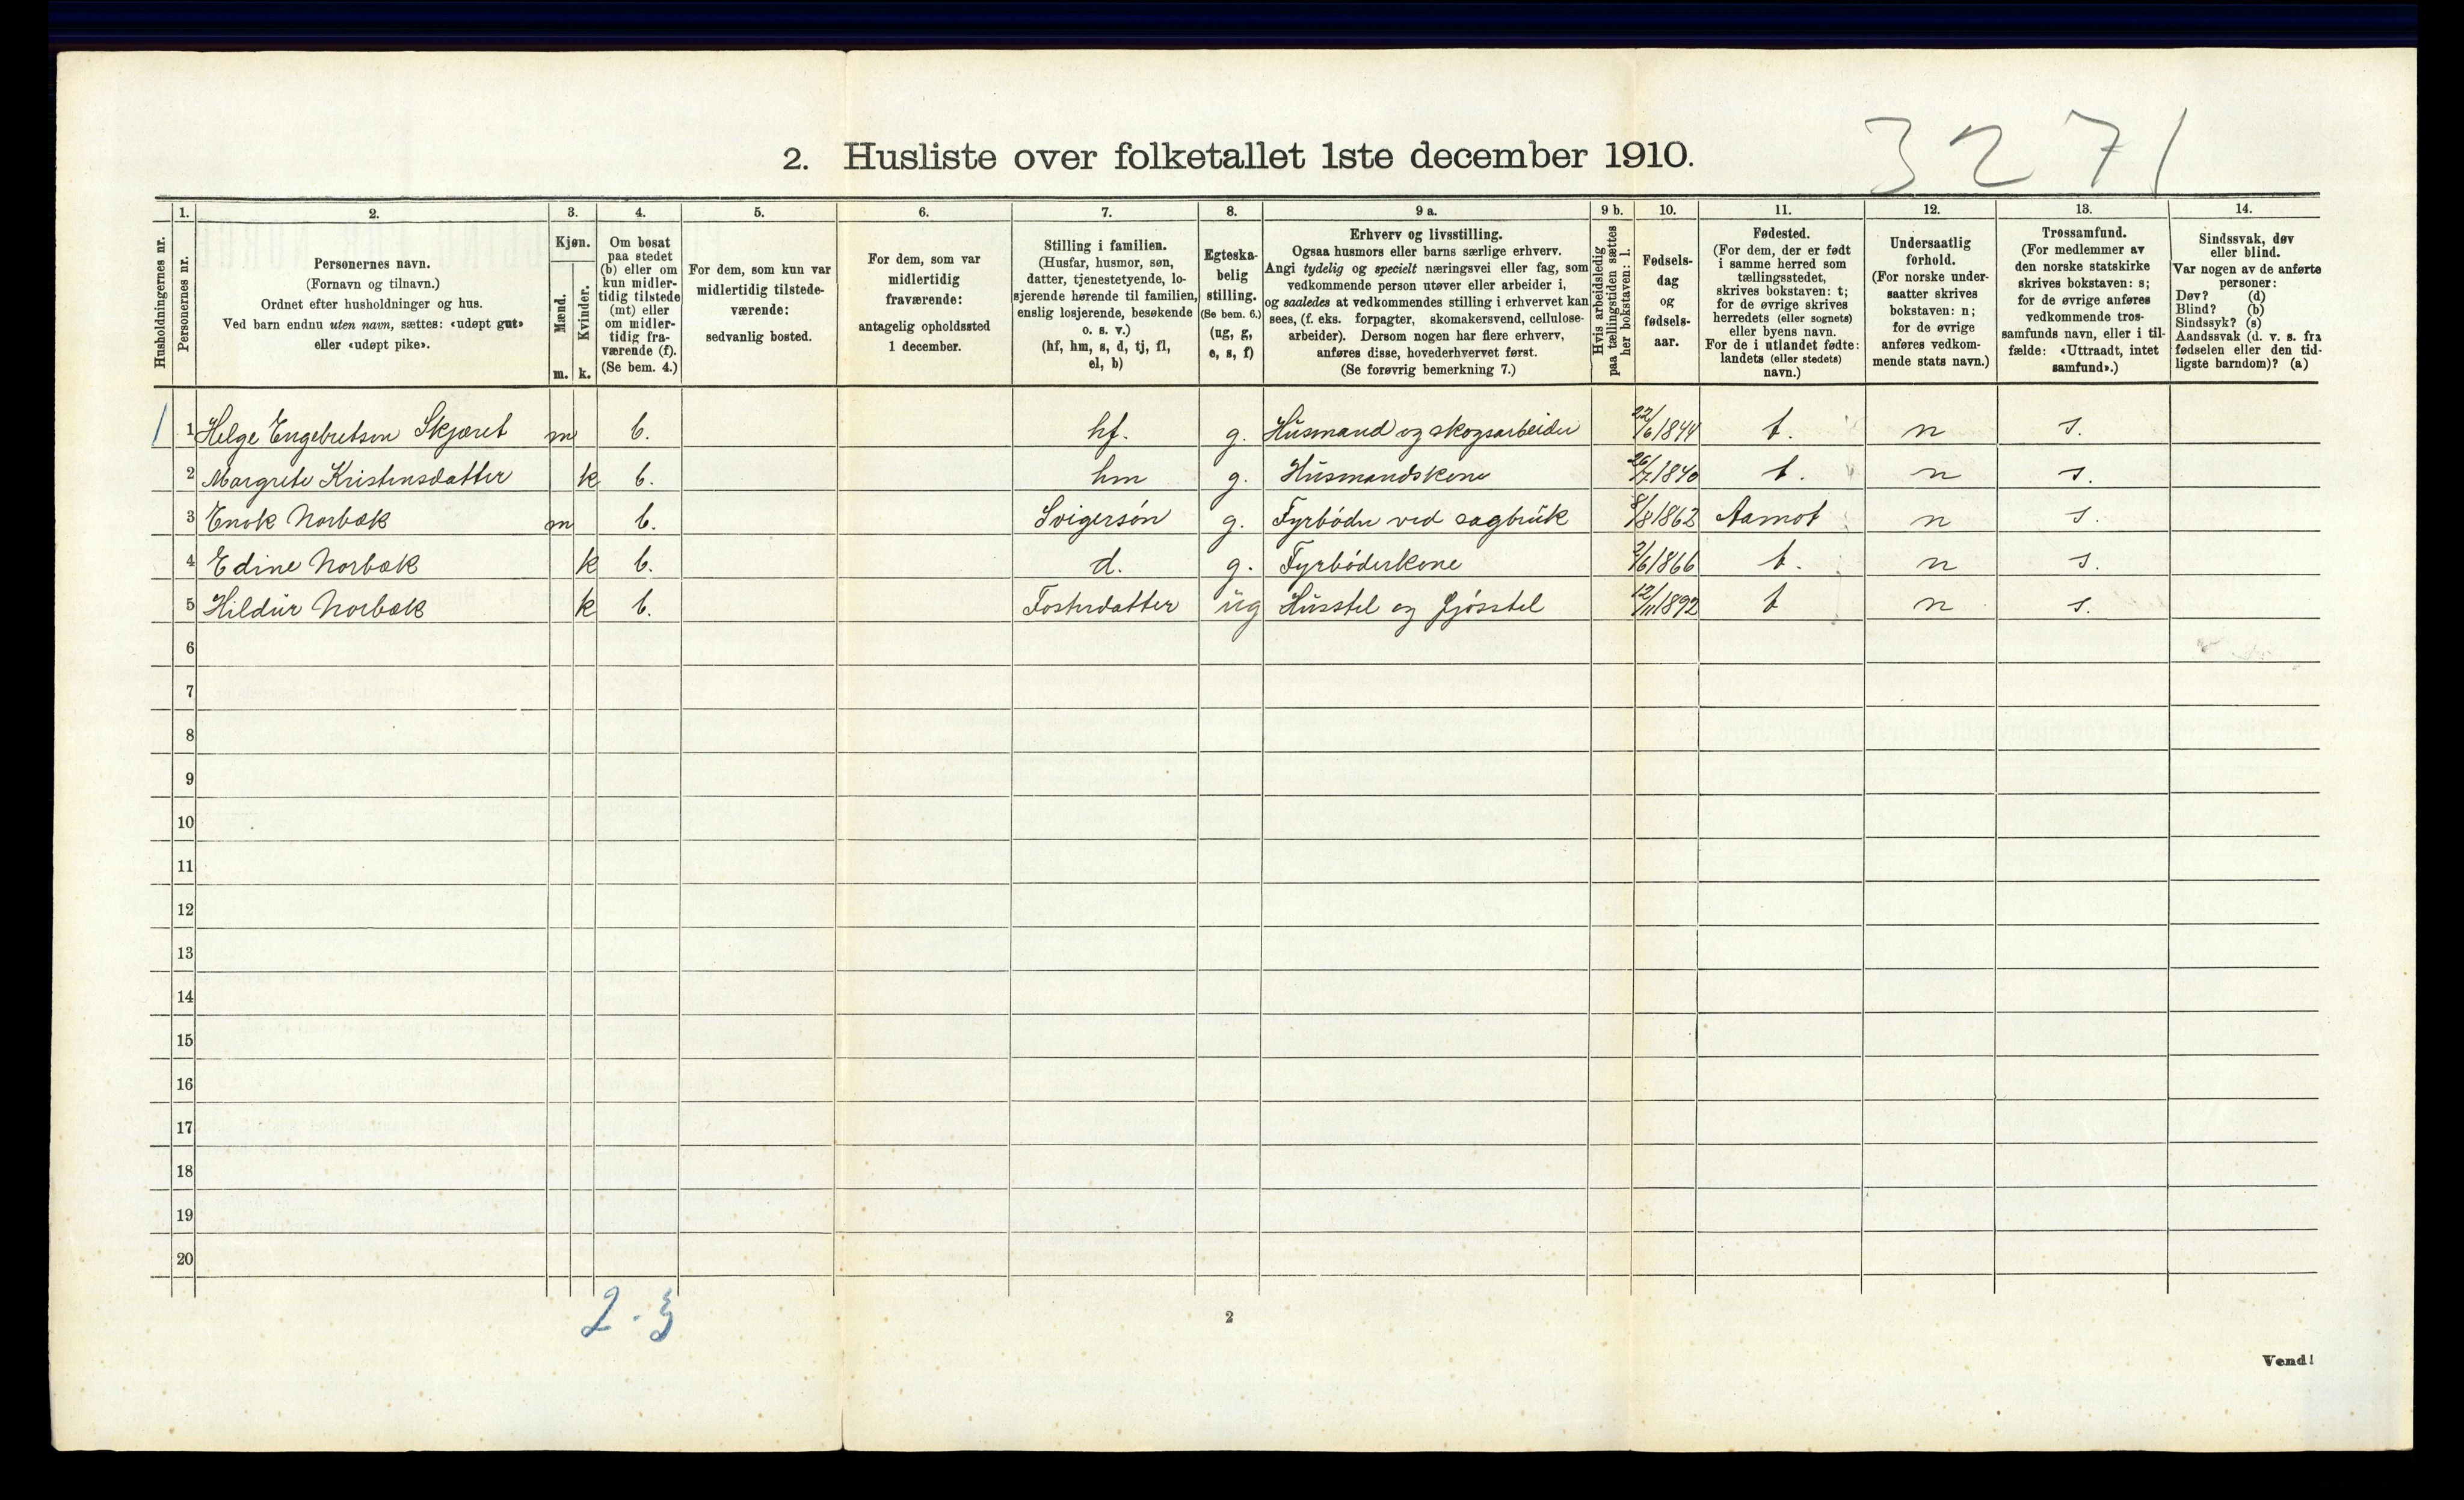 3271
2. Husliste over folketallet 1ste december 1910.
Husholdningernes nr.
1.
Personernes nr.
2.
Personernes navn.
(Fornavn og tilnavn.)
Ordnet efter husholdninger og hus.
Ved barn endnu uten navn, sættes: «udøpt gut»
eller «udøpt pike».
3.
Kjøn.
Mænd.
Kvinder.
m.
k.
4.
Om bosat
paa stedet
(b) eller om
kun midler-
tidig tilstede
(mt) eller
om midler-
tidig fra-
værende (f).
(Se bem. 4.)
5.
For dem, som kun var
midlertidig tilstede-
værende:
sedvanlig bosted.
6.
For dem, som var
midlertidig
fraværende:
antagelig opholdssted
1 december.
7.
Stilling i familien.
(Husfar, husmor, søn,
datter, tjenestetyende, lo-
sjerende hørende til familien,
enslig losjerende, besøkende
o. s. v.)
(hf, hm, s, d, tj, fl,
el, b)
8.
Egteska-
belig
stilling.
(Se bem. 6.)
(ug, g,
e, s, f)
9 a.
Erhverv og livsstilling.
Ogsaa husmors eller barns særlige erhverv.
Angi tydelig og specielt næringsvei eller fag, som
vedkommende person utøver eller arbeider i,
og saaledes at vedkommendes stilling i erhvervet kan
sees, (f. eks. forpagter, skomakersvend, cellulose-
arbeider). Dersom nogen har flere erhverv,
anføres disse, hovederhvervet først.
(Se forøvrig bemerkning 7.)
9 b.
Hvis arbeidsledig
paa tællingstiden sættes
her bokstaven: l.
10.
Fødsels-
dag
og
fødsels-
aar.
11.
Fødested.
(For dem, der er født
i samme herred som
tællingsstedet,
skrives bokstaven: t;
for de øvrige skrives
herredets (eller sognets)
eller byens navn.
For de i utlandet fødte:
landets (eller stedets)
navn.)
12.
Undersaatlig
forhold.
(For norske under-
saatter skrives
bokstaven: n;
for de øvrige
anføres vedkom-
mende stats navn.)
13.
Trossamfund.
(For medlemmer av
den norske statskirke
skrives bokstaven: s;
for de øvrige anføres
vedkommende tros-
samfunds navn, eller i til-
fælde: «Uttraadt, intet
samfund».)
14.
Sindssvak, døv
eller blind.
Var nogen av de anførte
personer:
Døv? (d)
Blind? (b)
Sindssyk? (s)
Aandssvak (d. v. s. fra
fødselen eller den tid-
ligste barndom)? (a)
1 1 Helge Engebretson Skjæret m b. hf. g. Husmand og skogsarbeider 22/6 1844 t. n s.
2 Margrete Kristensdatter k b. hm g. Husmandskone 26/7 1840 t. n s.
3 Enok Norbæk m b. Svigersøn g. Fyrbøder ved sagbruk 8/8 1862 Aamot n s.
4 Edine Norbæk k b. d. g. Fyrbøderkone 2/6 1866 t. n s.
5 Hildur Norbæk k b. Fosterdatter ug Husstel og fjøsstel 12/11 1892 t n s.
6
7
8
9
10
11
12
13
14
15
16
17
18
19
20
2 - 3
2
Vend!